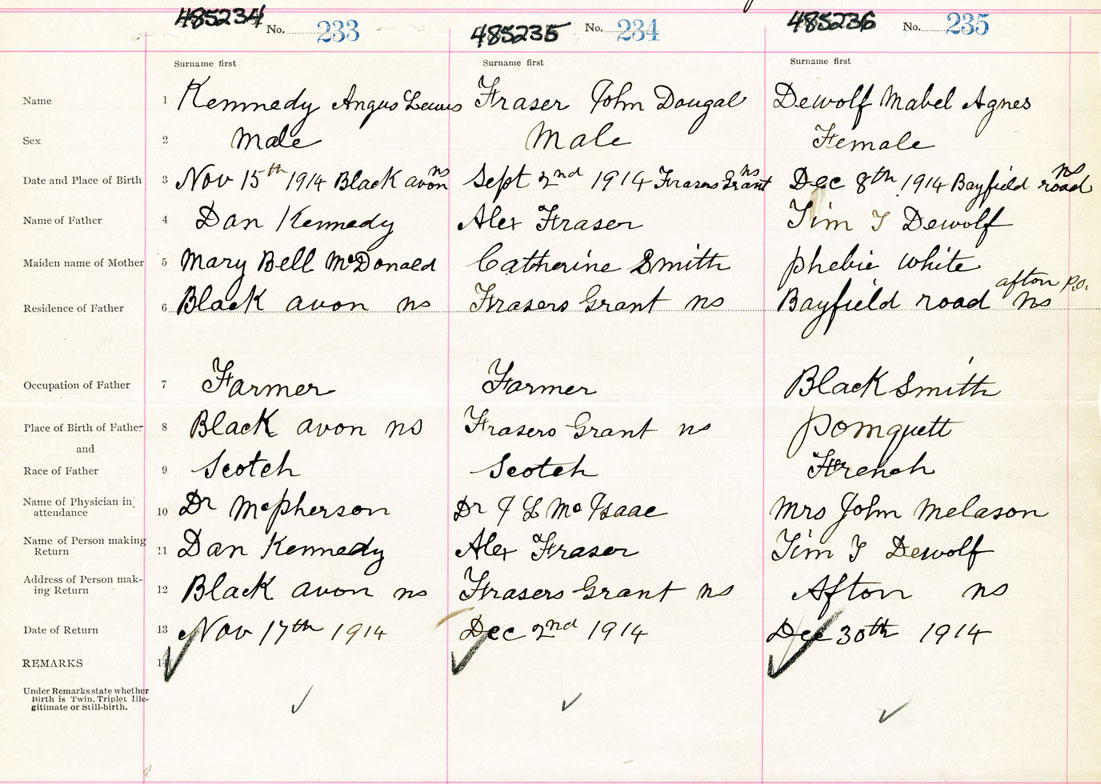 485234 No. 233 485235 No. 234 485236 No. 235
Surname first Surname first Surname first
Name 1 Kennedy Angus Lewis Fraser John Dougal Dewolf Mabel Agnes
Sex 2 Male Male Female
Date and Place of Birth 3 Nov 15th 1914 Black avon ns Sept 2nd 1914 Frasers Grant ns Dec 8th 1914 Bayfield road ns
Name of Father 4 Dan Kennedy Alex Fraser Tim T Dewolf
Maiden name of Mother 5 Mary Bell McDonald Catherine Smith Phebie White
afton P.O.
Residence of Father 6 Black avon ns Frasers Grant ns Bayfield road ns
Occupation of Father 7 Farmer Farmer Black Smith
Place of Birth of Father 8 Black avon ns Frasers Grant ns Pomquett
and
Race of Father 9 Scotch Scotch French
Name of Physician in attendance 10 Dr McPherson Dr J L McIsaac Mrs John Melason
Name of Person making Return 11 Dan Kennedy Alex Fraser Tim T Dewolf
Address of Person mak-ing Return 12 Black avon ns Frasers Grant ns Afton ns
Date of Return 13 Nov 17th 1914 Dec 2nd 1914 Dec 30th 1914
REMARKS 14
Under Remarks state whether
Birth is Twin, Triplet Ille-
gitimate or Still-birth.